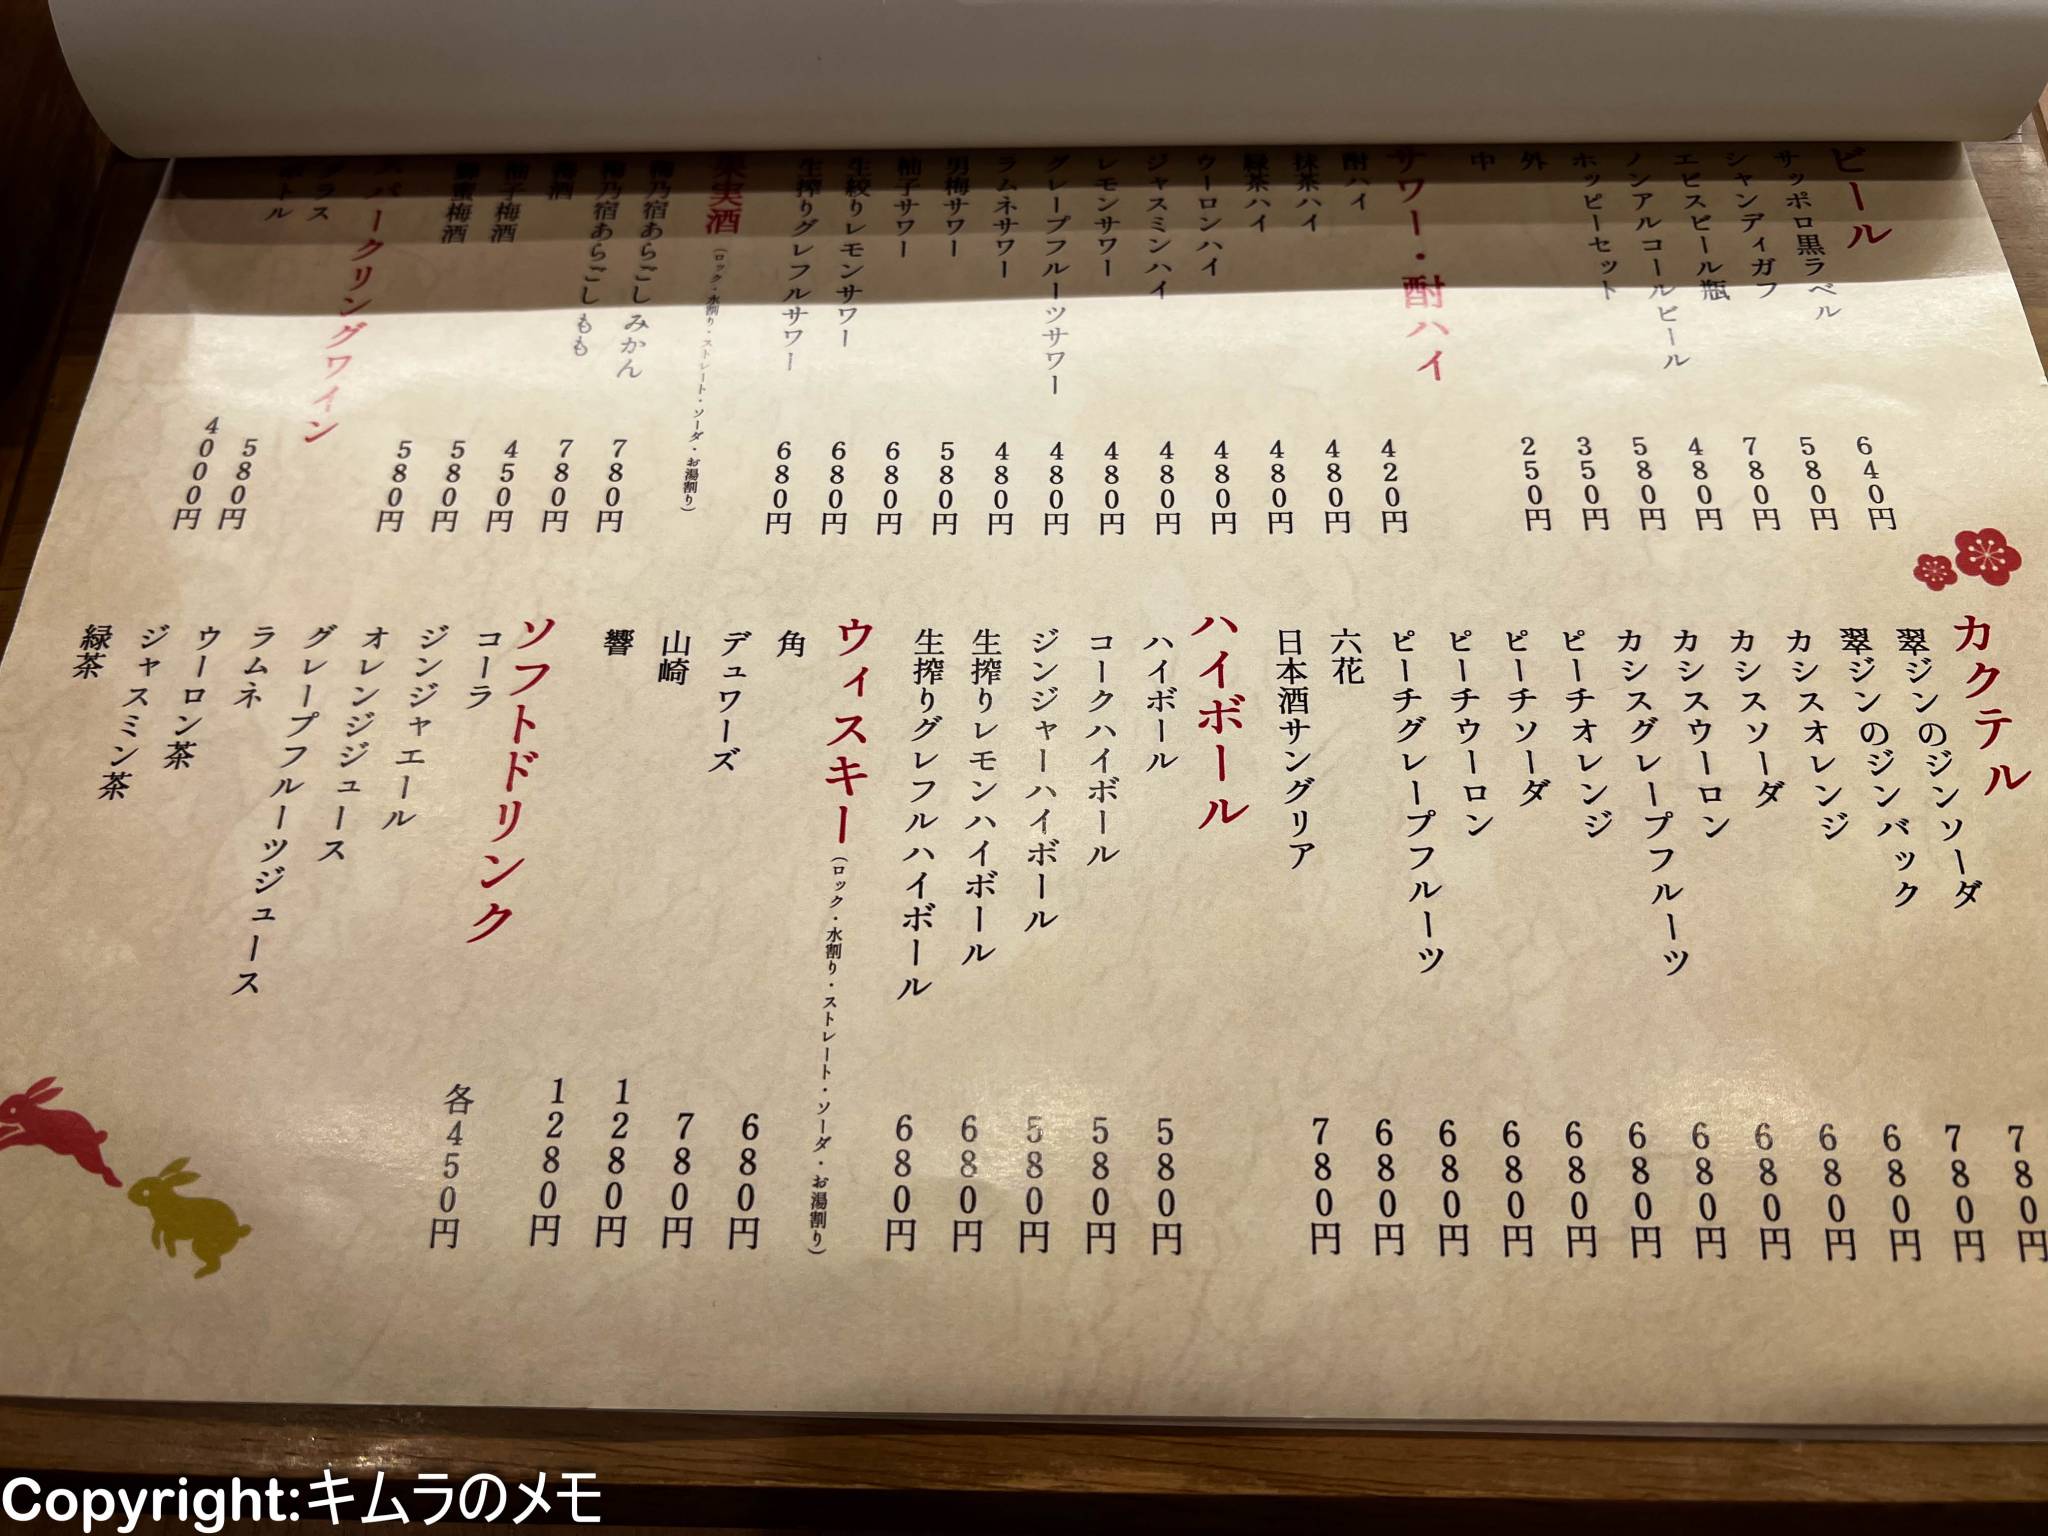 ビール
サッポロ黒ラベル 640円
シャンディガフ 580円
エビスビール瓶 780円
ノンアルコールビール 480円
ホッピーセット 580円
外 350円
中 250円
サワー・酎ハイ
酎ハイ 420円
抹茶ハイ 480円
緑茶ハイ 480円
ウーロンハイ 480円
ジャスミンハイ 480円
レモンサワー 480円
グレープフルーツサワー 480円
ラムネサワー 480円
男梅サワー 580円
柚子サワー 680円
生絞りレモンサワー 680円
生搾りグレフルサワー 680円
果実酒(ロック・水割り・ストレート・ソーダ・お湯割り)
梅乃宿あらごしみかん 780円
梅乃宿あらごしもも 780円
梅酒 450円
柚子梅酒 580円
蜂蜜梅酒 580円
スパークリングワイン
グラス 580円
ボトル 4000円
カクテル
翠ジンのジンソーダ 780円
翠ジンのジンバック 780円
カシスオレンジ 680円
カシスソーダ 680円
カシスウーロン 680円
カシスグレープフルーツ 680円
ピーチオレンジ 680円
ピーチソーダ 680円
ピーチウーロン 680円
ピーチグレープフルーツ 680円
六花 680円
日本酒サングリア 780円
ハイボール
ハイボール 580円
コークハイボール 580円
ジンジャーハイボール 580円
生搾りレモンハイボール 680円
生搾りグレフルハイボール 680円
ウィスキー(ロック・水割り・ストレート・ソーダ・お湯割り)
角 680円
デュワーズ 780円
山崎 1280円
響 1280円
ソフトドリンク
コーラ 各450円
ジンジャエール
オレンジジュース
グレープフルーツジュース
ラムネ
ウーロン茶
ジャスミン茶
緑茶
Copyright:キムラのメモ